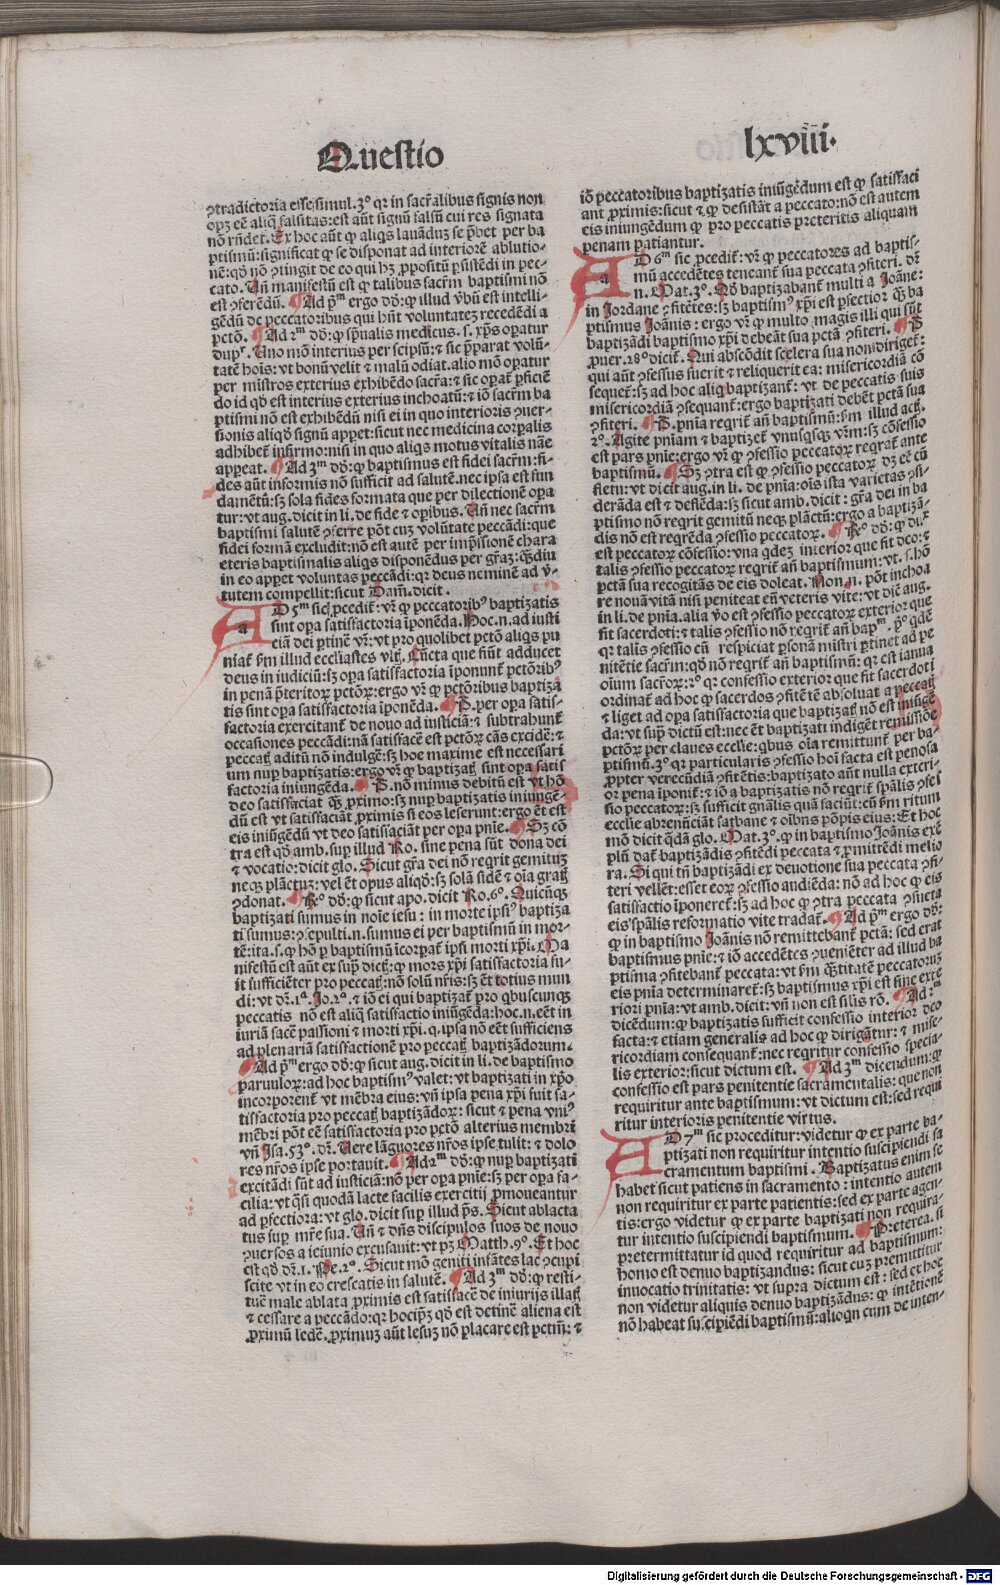 Questio
lxviii.
ꝯtradictoria esse simul. 3º qꝛ in sacr̄alibus signis non
opꝫ eē aliqͣ falsitas: est aūt signū falsū cui res signata
nō rn̄det. Ex hoc aūt ꝙ aliqs lauāduꝫ se p̄bet per ba
ptismū: significat̄ ꝙ se disponat ad interiorē ablutio-
nē: qd̄ nō ꝯtingit de eo qui hꝫ ꝓpositū ꝑsistēdi in pec-
cato. Un̄ manifestū est ꝙ talibus sacrm̄ baptismi nō
est ꝯferēdū. Ad pͫ ergo dd̄: ꝙ illud v̄bū est intelli-
gēdū de peccatoribus qui hn̄t voluntateꝫ recedēdi a
pctō. Ad 2ͫ dd̄: ꝙ spūalis medicus .s. xp̄s operatur
dupͬ. Uno mō interius per seipsū: ⁊ sic p̄parat volū-
tatē hoīs: vt bonū velit ⁊ malū odiat. alio mō operatur
per mīstros exterius exhibēdo sacr̄a: ⁊ sic opat̄ ꝑficiē
do id qd̄ est interius exterius inchoatū: ⁊ iō sacrm̄ ba
ptismi nō est exhibēdū nisi ei in quo interioris ꝯuer-
sionis aliqd̄ signū appet: sicut nec medicina corpalis
adhibet̄ infirmo: nisi in quo aliqs motus vitalis nāe
appeat. Ad 3ͫ dd̄: ꝙ baptismus est fidei sacrm̄: fi-
des aūt informis nō sufficit ad salutē. nec ipsa est fun
damētū: sꝫ sola fides formata que per dilectionē opa
tur: vt aug. dicit in li. de fide ⁊ opibus. Un̄ nec sacrm̄
baptismi salutē ꝯferre pōt cuꝫ volūtate peccādi: que
fidei formā excludit: nō est autē per imp̄ssionē chara
cteris baptismalis aliqs disponēdus per gr̄aꝫ: qͣ̄diu
in eo appet voluntas peccādi: qꝛ deus neminē ad v̄-
tutem compellit: sicut Dam̄. dicit.
AD 5ͫ sic ꝓcedit̄: vr̄ ꝙ peccatoribꝰ baptizatis
sint opa satisfactoria īponēda. Hoc .n. ad iusti
ciā dei ptinē vr̄: vt pro quolibet pctō aliqs pu
niat̄ ẜm illud ecclīastes vltꝭ. Cūcta que fiūt adducet
deus in iudiciū: sꝫ opa satisfactoria īponunt̄ pctōribꝰ
in penā p̄teritoꝝ pctōꝝ: ergo vr̄ ꝙ pctōribus baptiza
tis sint opa satisfactoria īponēda. P. per opa satis-
factoria exercitant̄ de nouo ad iusticiā: ⁊ subtrahunt̄
occasiones peccādi: nā satisfacē est pctōꝝ cās excidē: ⁊
peccatꝭ aditū nō indulgē: sꝫ hoc maxime est necessari
um nuꝑ baptizatis: ergo vr̄ ꝙ baptizatꝭ sint opa satis
factoria iniungēda. P. nō minus debitū est vt hō
deo satisfaciat qͣ̄ ꝓximo: sꝫ nuꝑ baptizatis iniungē-
dū est vt satisfaciāt ꝓximis si eos leserunt: ergo ēt est
eis iniūgēdū vt deo satisfaciāt per opa pn̄ie. Sꝫ cō
tra est qd̄ amb. suꝑ illud Ro. sine pena sūt dona dei
⁊ vocatio: dicit glo. Sicut gr̄a dei nō reqrit gemituꝫ
neqꝫ plāctuꝫ: vel ēt opus aliqd̄: sꝫ solā fidē ⁊ oīa gratꝭ
ꝯdonat. Rº dd̄: ꝙ sicut apo. dicit Ro. 6º. Quicūqꝫ
baptizati sumus in noīe iesu: in morte ipsiꝰ baptiza
ti sumus: ꝯsepulti .n. sumus ei per baptismū in mor-
tē: ita .s. ꝙ hō ꝑ baptismū īcorpat̄ ipsi morti xp̄i. Ma
nifestū est aūt ex sup̄ dictꝭ: ꝙ mors xp̄i satisfactoria fu-
it sufficiēter pro peccatꝭ: nō solū nr̄is: sꝫ ēt totius mun
di: vt dr̄. 1ª. Jo. 2º. ⁊ iō ei qui baptizat̄ pro qbuscunqꝫ
peccatis nō est aliqͣ satisfactio iniūgēda: hoc .n. eēt in
iuriā facē passioni ⁊ morti xp̄i. q. ipsa nō eēt sufficiens
ad plenariā satisfactionē pro peccatꝭ baptizādorum.
Ad pͫ ergo dd̄: ꝙ sicut aug. dicit in li. de baptismo
paruuloꝝ: ad hoc baptismꝰ valet: vt baptizati in xp̄o
incorporent̄ vt mēbra eius: vn̄ ipsa pena xp̄i fuit sa-
tisfactoria pro peccatꝭ baptizādoꝝ: sicut ⁊ pena vniꝰ
mēbri pōt eē satisfactoria pro pctō alterius membri
vn̄ Jsa. 53º. dr̄. Uere lāguores nr̄os ipse tulit: ⁊ dolo
res nr̄os ipse portauit. Ad 2ͫ dd̄: ꝙ nuꝑ baptizati
excitādi sūt ad iusticiā: nō per opa pn̄ie: sꝫ per opa fa-
cilia: vt qͣsi quodā lacte facilis exercitij ꝓmoueantur
ad ꝑfectiora: vt glo. dicit suꝑ illud p̄s. Sicut ablacta
tus suꝑ mr̄e sua. Un̄ ⁊ dn̄s discipulos suos de nouo
ꝯuersos a ieiunio excusauit: vt pꝫ Matth. 9º. Et hoc
est qd̄ dr̄. 1. Pe. 2º. Sicut mō geniti infātes lac ꝯcupi
scite vt in eo crescatis in salutē. Ad 3ͫ dd̄: ꝙ resti-
tuē male ablata ꝓximis est satisfacē de iniurijs illatꝭ
⁊ cessare a peccādo: qꝛ hocipꝫ qd̄ est detinē aliena est
ꝓximū ledē. ꝓximuꝫ aūt lesuꝫ nō placare est pctm̄: ⁊
iō peccatoribus baptizatis iniūgēdum est ꝙ satisfaci
ant ꝓximis: sicut ⁊ ꝙ desistāt a peccato: nō est autem
eis iniungēdum ꝙ pro peccatis preteritis aliquam
penam patiantur.
AD 6ͫ sic ꝓcedit̄: vr̄ ꝙ peccatores ad baptis-
mū accedētes teneant̄ sua peccata ꝯfiteri. dr̄
.n. Mat. 3º. Qd̄ baptizabant̄ multi a Joāne:
in Jordane ꝯfitētes: sꝫ baptismꝰ xp̄i est ꝑfectior qͣ̄ ba
ptismus Joānis: ergo vr̄ ꝙ multo magis illi qui sūt
baptizādi baptismo xp̄i debeāt sua pctā ꝯfiteri. P
ꝓuer. 28º dicit̄. Qui abscōdit scelera sua non diriget̄:
qui aūt ꝯfessus fuerit ⁊ reliquerit ea: misericordiā cō
sequet̄: sꝫ ad hoc aliqͣ baptizant̄: vt de peccatis suis
misericordiā ꝯsequant̄: ergo baptizati debēt pctā sua
ꝯfiteri. P. pn̄ia reqrit̄ an̄ baptismū: ẜm illud actꝭ.
2º. Agite pn̄iam ⁊ baptizet̄ vnusqͥsqꝫ vr̄m: sꝫ cōfessio
est pars pn̄ie: ergo vr̄ ꝙ ꝯfessio peccatoꝝ reqrat̄ ante
baptismū. Sꝫ ꝯtra est ꝙ ꝯfessio peccatoꝝ dꝫ eē cū
fletu: vt dicit aug. in li. de pn̄ia: oīs ista varietas ꝯsi-
derāda est ⁊ deflēda: sꝫ sicut amb. dicit: gr̄a dei in ba
ptismo nō reqrit gemitū neqꝫ plāctū: ergo a baptizā-
dis nō est reqrēda ꝯfessio peccatoꝝ. Rº dd̄: ꝙ duꝫ
est peccatoꝝ cōfessio: vna qdeꝫ interior que fit deo: ⁊
talis ꝯfessio peccatoꝝ reqrit̄ an̄ baptismum: vt .s. hō
pctā sua recogitās de eis doleat. Non .n. pōt inchoa
re nouā vitā nisi peniteat eū veteris vite: vt dīc aug.
in li. de pn̄ia. alia v̄o est ꝯfessio peccatoꝝ exterior que
fit sacerdoti: ⁊ talis ꝯfessio nō reqrit̄ an̄ bapͫ. pº qdē
qꝛ talis ꝯfessio cū respiciat ꝑsonā mīstri ptinet ad pe
nitētie sacrm̄: qd̄ nō reqrit̄ an̄ baptismū: qꝛ est ianua
oīum sacroꝝ: 2º qꝛ confessio exterior que fit sacerdoti
ordinat̄ ad hoc ꝙ sacerdos ꝯfitētē absoluat a peccatꝭ
⁊ liget ad opa satisfactoria que baptizatꝭ nō est iniūgē
da: vt sup̄ dictū est: nec ēt baptizati indigēt remissiōe
pctōꝝ per claues ecclīe: qbus oīa remittunt̄ per ba-
ptismū. 3º qꝛ particularis ꝯfessio hoī facta est penosa
ꝓpter verecūdiā ꝯfitētis: baptizato aūt nulla exteri-
or pena īponit̄: ⁊ iō a baptizatis nō reqrit̄ spālis ꝯfes
sio peccatoꝝ: sꝫ sufficit gn̄alis quā faciūt: cū ẜm ritum
ecclīe abrenūciāt sathane ⁊ oībus pōpis eius: Et hoc
mō dicit qdā glo. Mat. 3º. ꝙ in baptismo Joānis exē
plū dat̄ baptizādis ꝯfitēdi peccata ⁊ ꝓmittēdi melio
ra. Si qui tn̄ baptizādi ex deuotione sua peccata ꝯfi-
teri vellēt: esset eoꝝ ꝯfessio audiēda: nō ad hoc ꝙ eis
satisfactio īponeret̄: sꝫ ad hoc ꝙ ꝯtra peccata ꝯsueta
eis spālis reformatio vite tradat̄. Ad pͫ ergo dd̄:
ꝙ in baptismo Joānis nō remittebant̄ pctā: sed erat
baptismus pn̄ie: ⁊ iō accedētes ꝯueniēter ad illud ba
ptisma ꝯfitebant̄ peccata: vt ẜm qͣ̄titatē peccatoruꝫ
eis pn̄ia determinaret̄: sꝫ baptismus xp̄i est sine exte
riori pn̄ia: vt amb. dicit: vn̄ non est siłis rō. Ad 2ͫ
dicēdum: ꝙ baptizatis sufficit confessio interior deo
facta: ⁊ etiam generalis ad hoc ꝙ dirigātur: ⁊ mise-
ricordiam consequant̄: nec reqritur confessio specia-
lis exterior: sicut dictum est. Ad 3ͫ dicendum: ꝙ
confessio est pars penitentie sacramentalis: que non
requiritur ante baptismum: vt dictum est: sed requi
ritur interioris penitentie virtus.
AD 7ͫ sic proceditur: videtur ꝙ ex parte ba-
ptizati non requiritur intentio suscipiendi sa
cramentum baptismi. Baptizatus enim se
habet sicut patiens in sacramento: intentio autem
non requiritur ex parte patientis: sed ex parte agen-
tis: ergo videtur ꝙ ex parte baptizati non requira-
tur intentio suscipiendi baptismum. Preterea. si
pretermittatur id quod requiritur ad baptismum:
homo est denuo baptizandus: sicut cuꝫ premittitur
inuocatio trinitatis: vt supra dictum est: sed ex hoc
non videtur aliquis denuo baptizādus: ꝙ intētionē
nō habeat suscipiēdi baptismū: alioqn cum de inten-
Digitalisierung gefördert durch die Deutsche Forschungsgemeinschaft - DFG